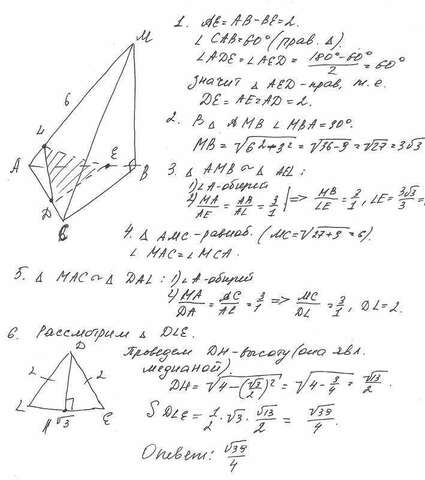 M
6
L
A
E
B
D
C
1. AE = AB - BE = 2.
∠ CAB = 60° (прав. Δ).
∠ADE = ∠AED = (180° - 60°)/2 = 60°
Значит Δ AED - прав, т. е.
DE = AE = AD = 2.
2. В Δ AMB ∠ MBA = 90°.
MB = √(6² + 3²) = √(36-9) = √27 = 3√3
3. Δ AMB ~ Δ AEL:
1) ∠A - общий
2) MA/AE = AB/AL = 3/1 | => MB/LE = 2/1, LE = 3√3/3 =
4. Δ AMC - равноб. (MC = √(27+9) = 6).
∠ MAC = ∠ MCA.
5. Δ MAC ~ Δ DAL: 1) ∠A - общий
2) MA/DA = AC/AL = 3/1 => MC/DL = 3/1, DL = 2.
6. Рассмотрим Δ DLE.
Проведем DH - высоту (она явл.
медианой).
DH = √(4 - (√2/2)²) = √(4 - 3/4) = √13/2.
S DLE = 1/2 · √3 · √13/2 = √39/4.
Ответ: √39/4
D
2
2
L
H
√3
E